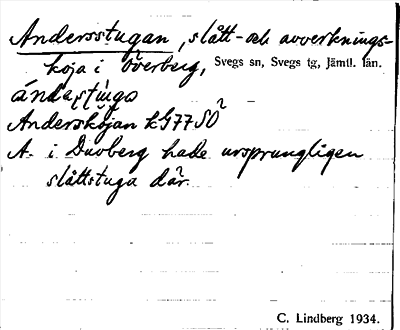 Andersstugan, slått- och avverknings-
koja i Överberg, Svegs sn, Svegs tg, Jämtl. län.
Anderskojan kG77SÖ²
A. i Duvberg hade ursprungligen
slåttstuga där.
C. Lindberg 1934.